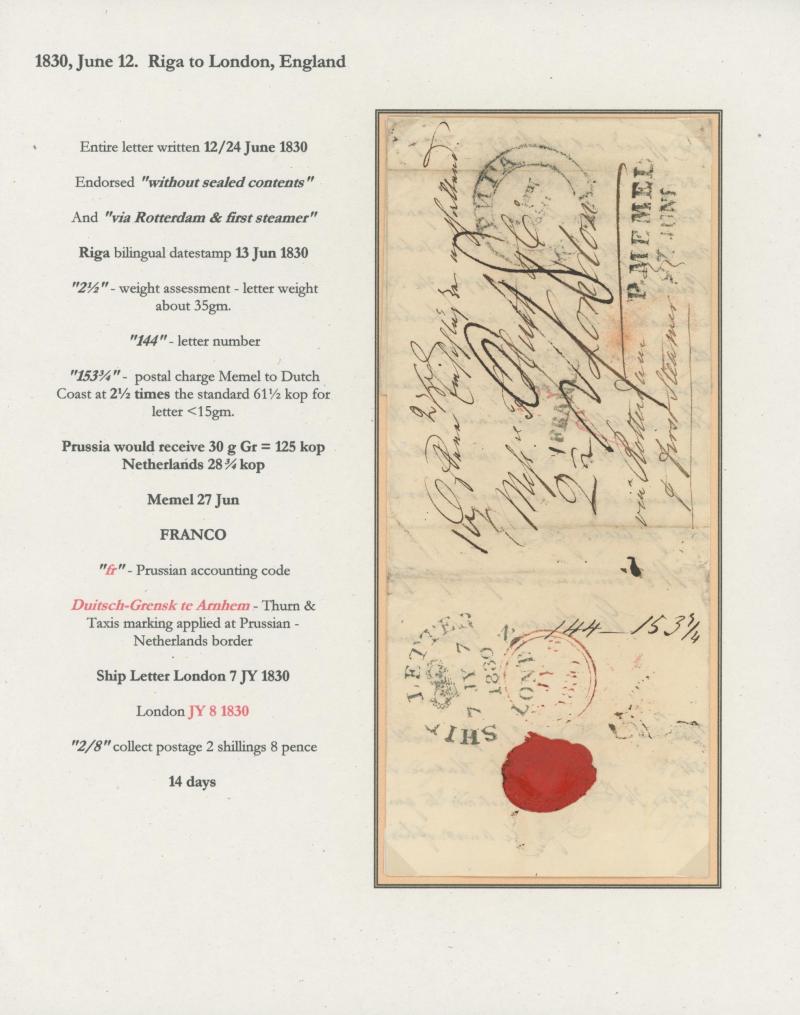 1830, June 12. Riga to London, England
Entire letter written 12/24 June 1830
Endorsed "without sealed contents"
And "via Rotterdam & first steamer"
Riga bilingual datestamp 13 Jun 1830
"2½" - weight assessment - letter weight
about 35gm.
"144" - letter number
"153¾" - postal charge Memel to Dutch
Coast at 2½ times the standard 61½ kop for
letter <15gm.
Prussia would receive 30 g Gr = 125 kop
Netherlands 28¾ kop
Memel 27 Jun
FRANCO
"fr" - Prussian accounting code
Duitsch-Grensk te Arnhem - Thurn &
Taxis marking applied at Prussian -
Netherlands border
Ship Letter London 7 JY 1830
London JY 8 1830
"2/8" collect postage 2 shillings 8 pence
14 days
РИГА
London
via Rotterdam
first steamer
P. MEMEL
27 JUNI
144 - 153¾
SHIP LETTER
7 JY 7
1830
JY 8
1830